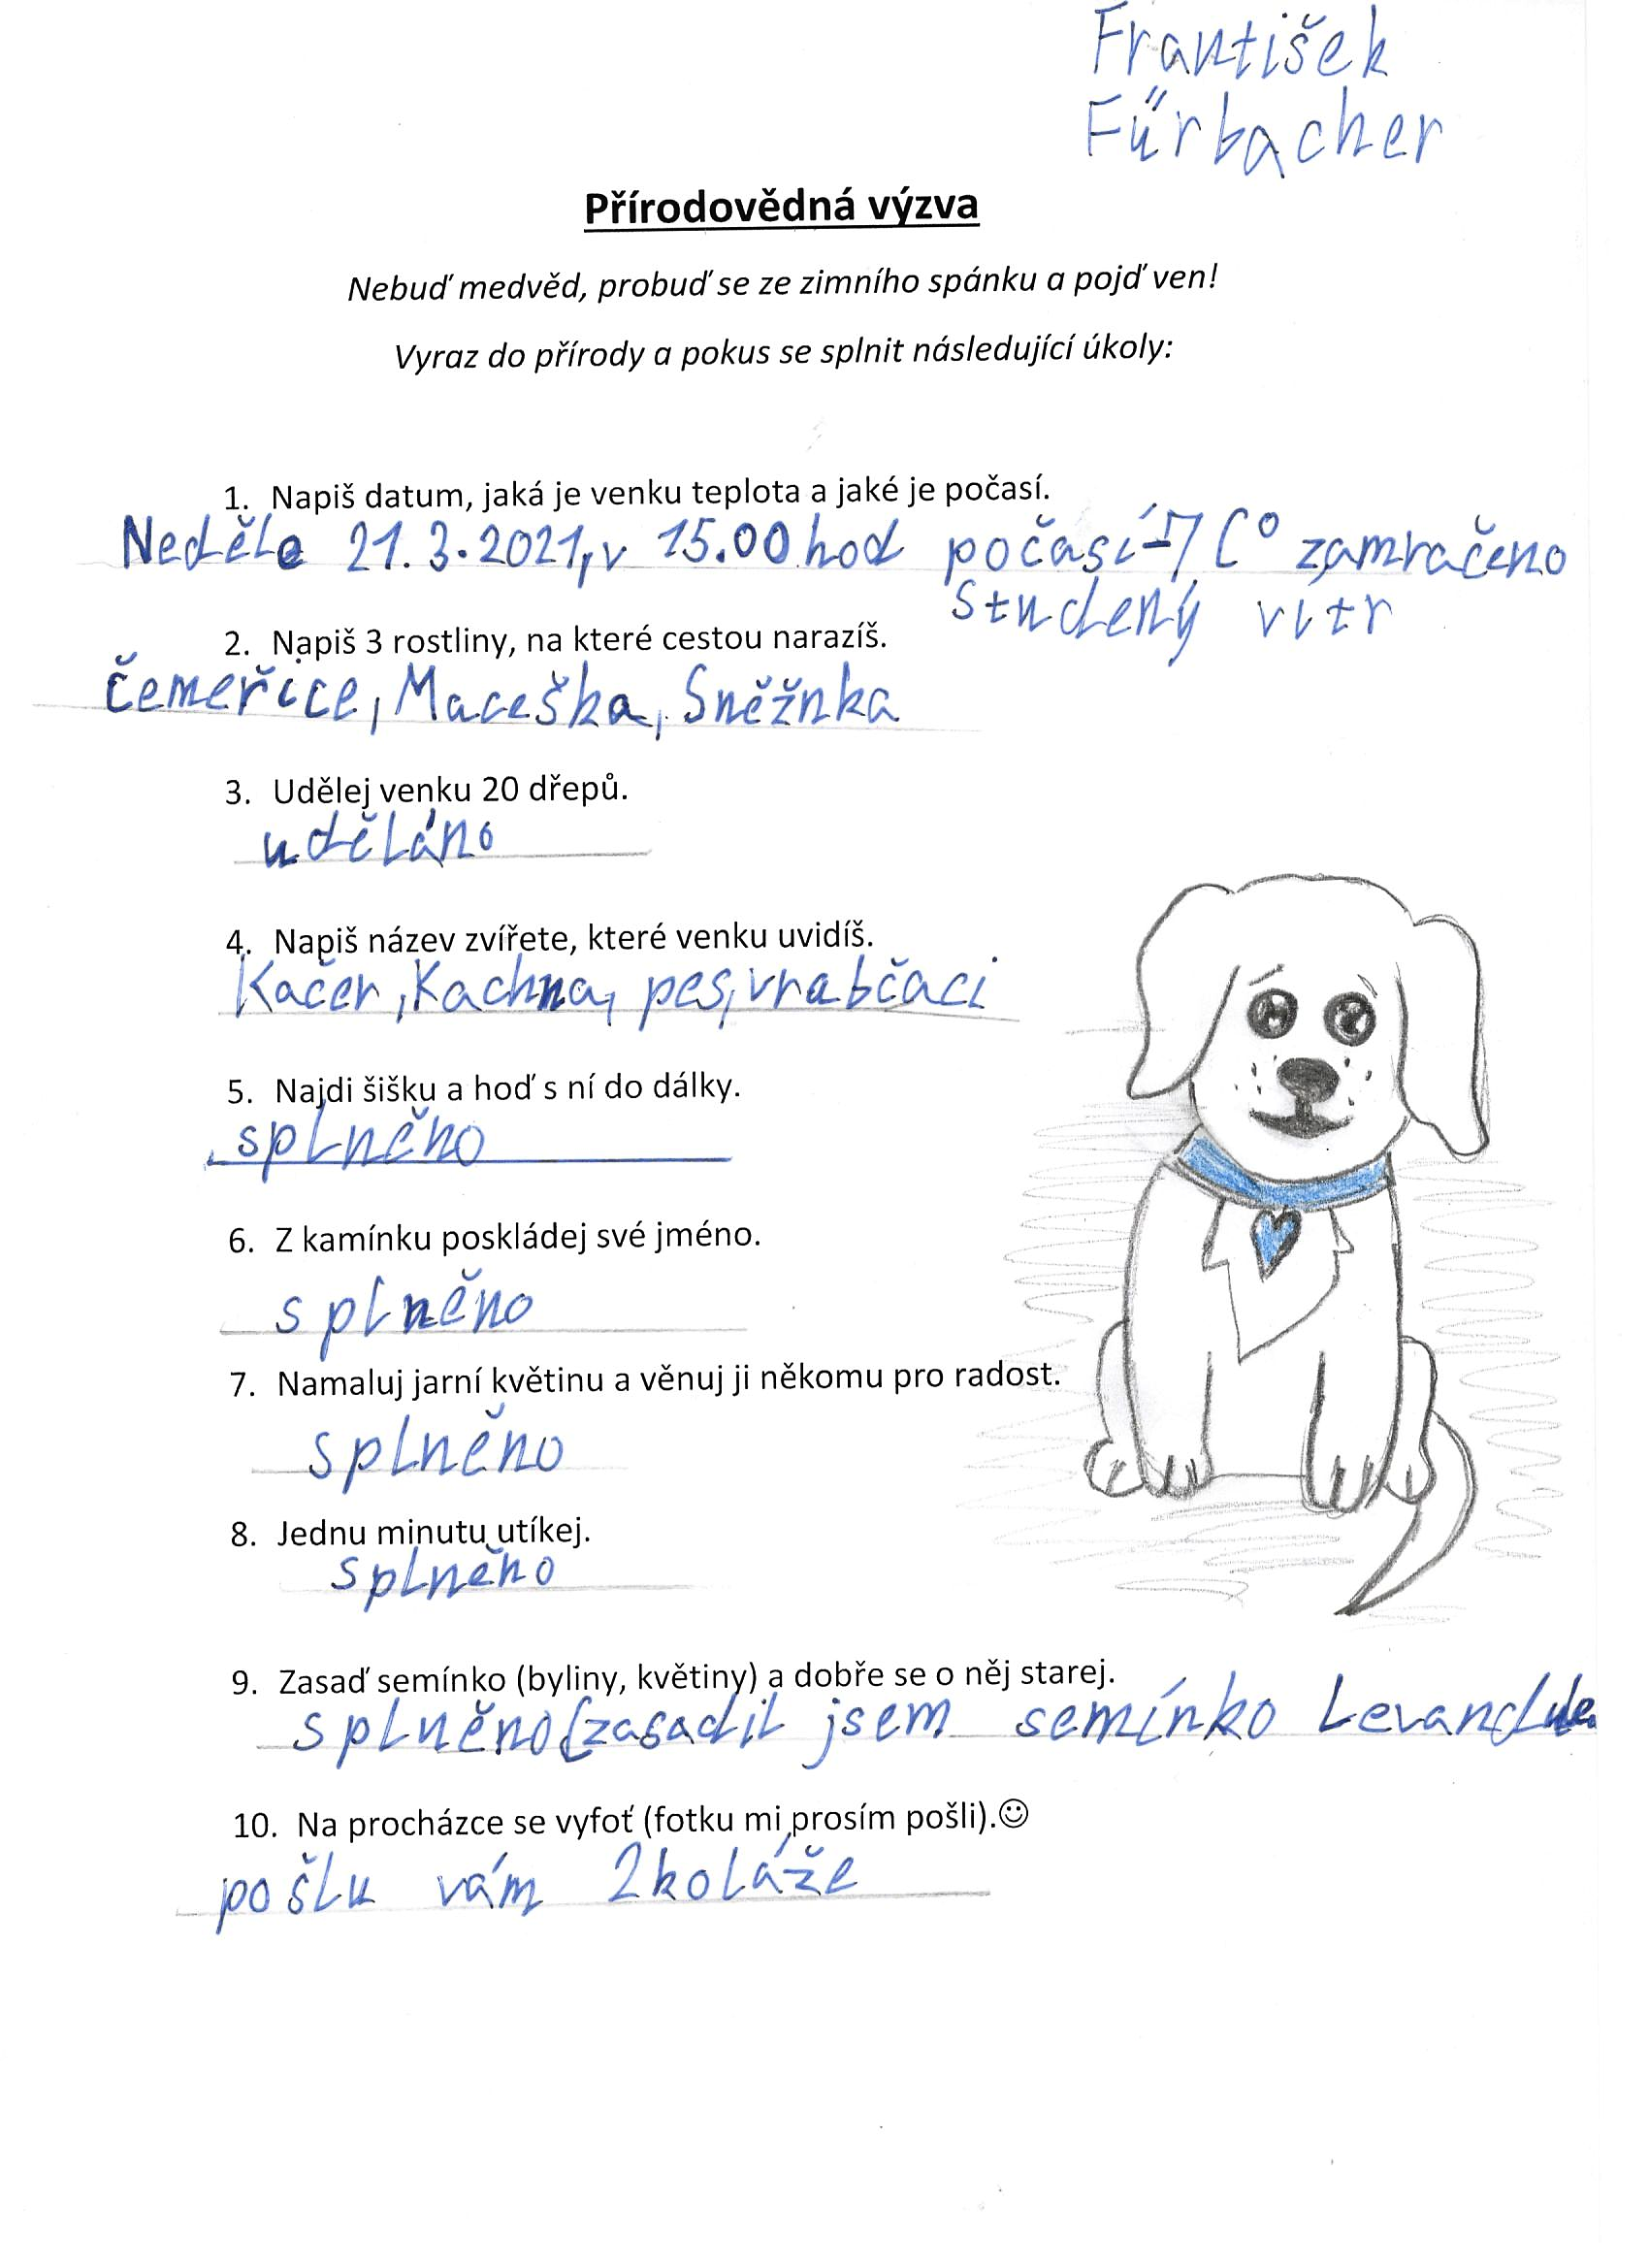 František
Fűrbacher
Přírodovědná výzva
Nebuď medvěd, probuď se ze zimního spánku a pojď ven!
Vyraz do přírody a pokus se splnit následující úkoly:
1. Napiš datum, jaká je venku teplota a jaké je počasí.
Neděle 21.3.2021, v 15.00 hod počasí-7 C° zamračeno
studený vítr
2. Napiš 3 rostliny, na které cestou narazíš.
Čemeřice, Maceška, Sněžnka
3. Udělej venku 20 dřepů.
uděláno
4. Napiš název zvířete, které venku uvidíš.
Kačer, Kachna, pes, vrabčaci
5. Najdi šišku a hoď s ní do dálky.
splněno
6. Z kamínku poskládej své jméno.
splněno
7. Namaluj jarní květinu a věnuj ji někomu pro radost.
splněno
8. Jednu minutu utíkej.
splněno
9. Zasaď semínko (byliny, květiny) a dobře se o něj starej.
splněno (zasadil jsem semínko
10. Na procházce se vyfoť (fotku mi prosím pošli).☺
pošlu vám 2 koláže